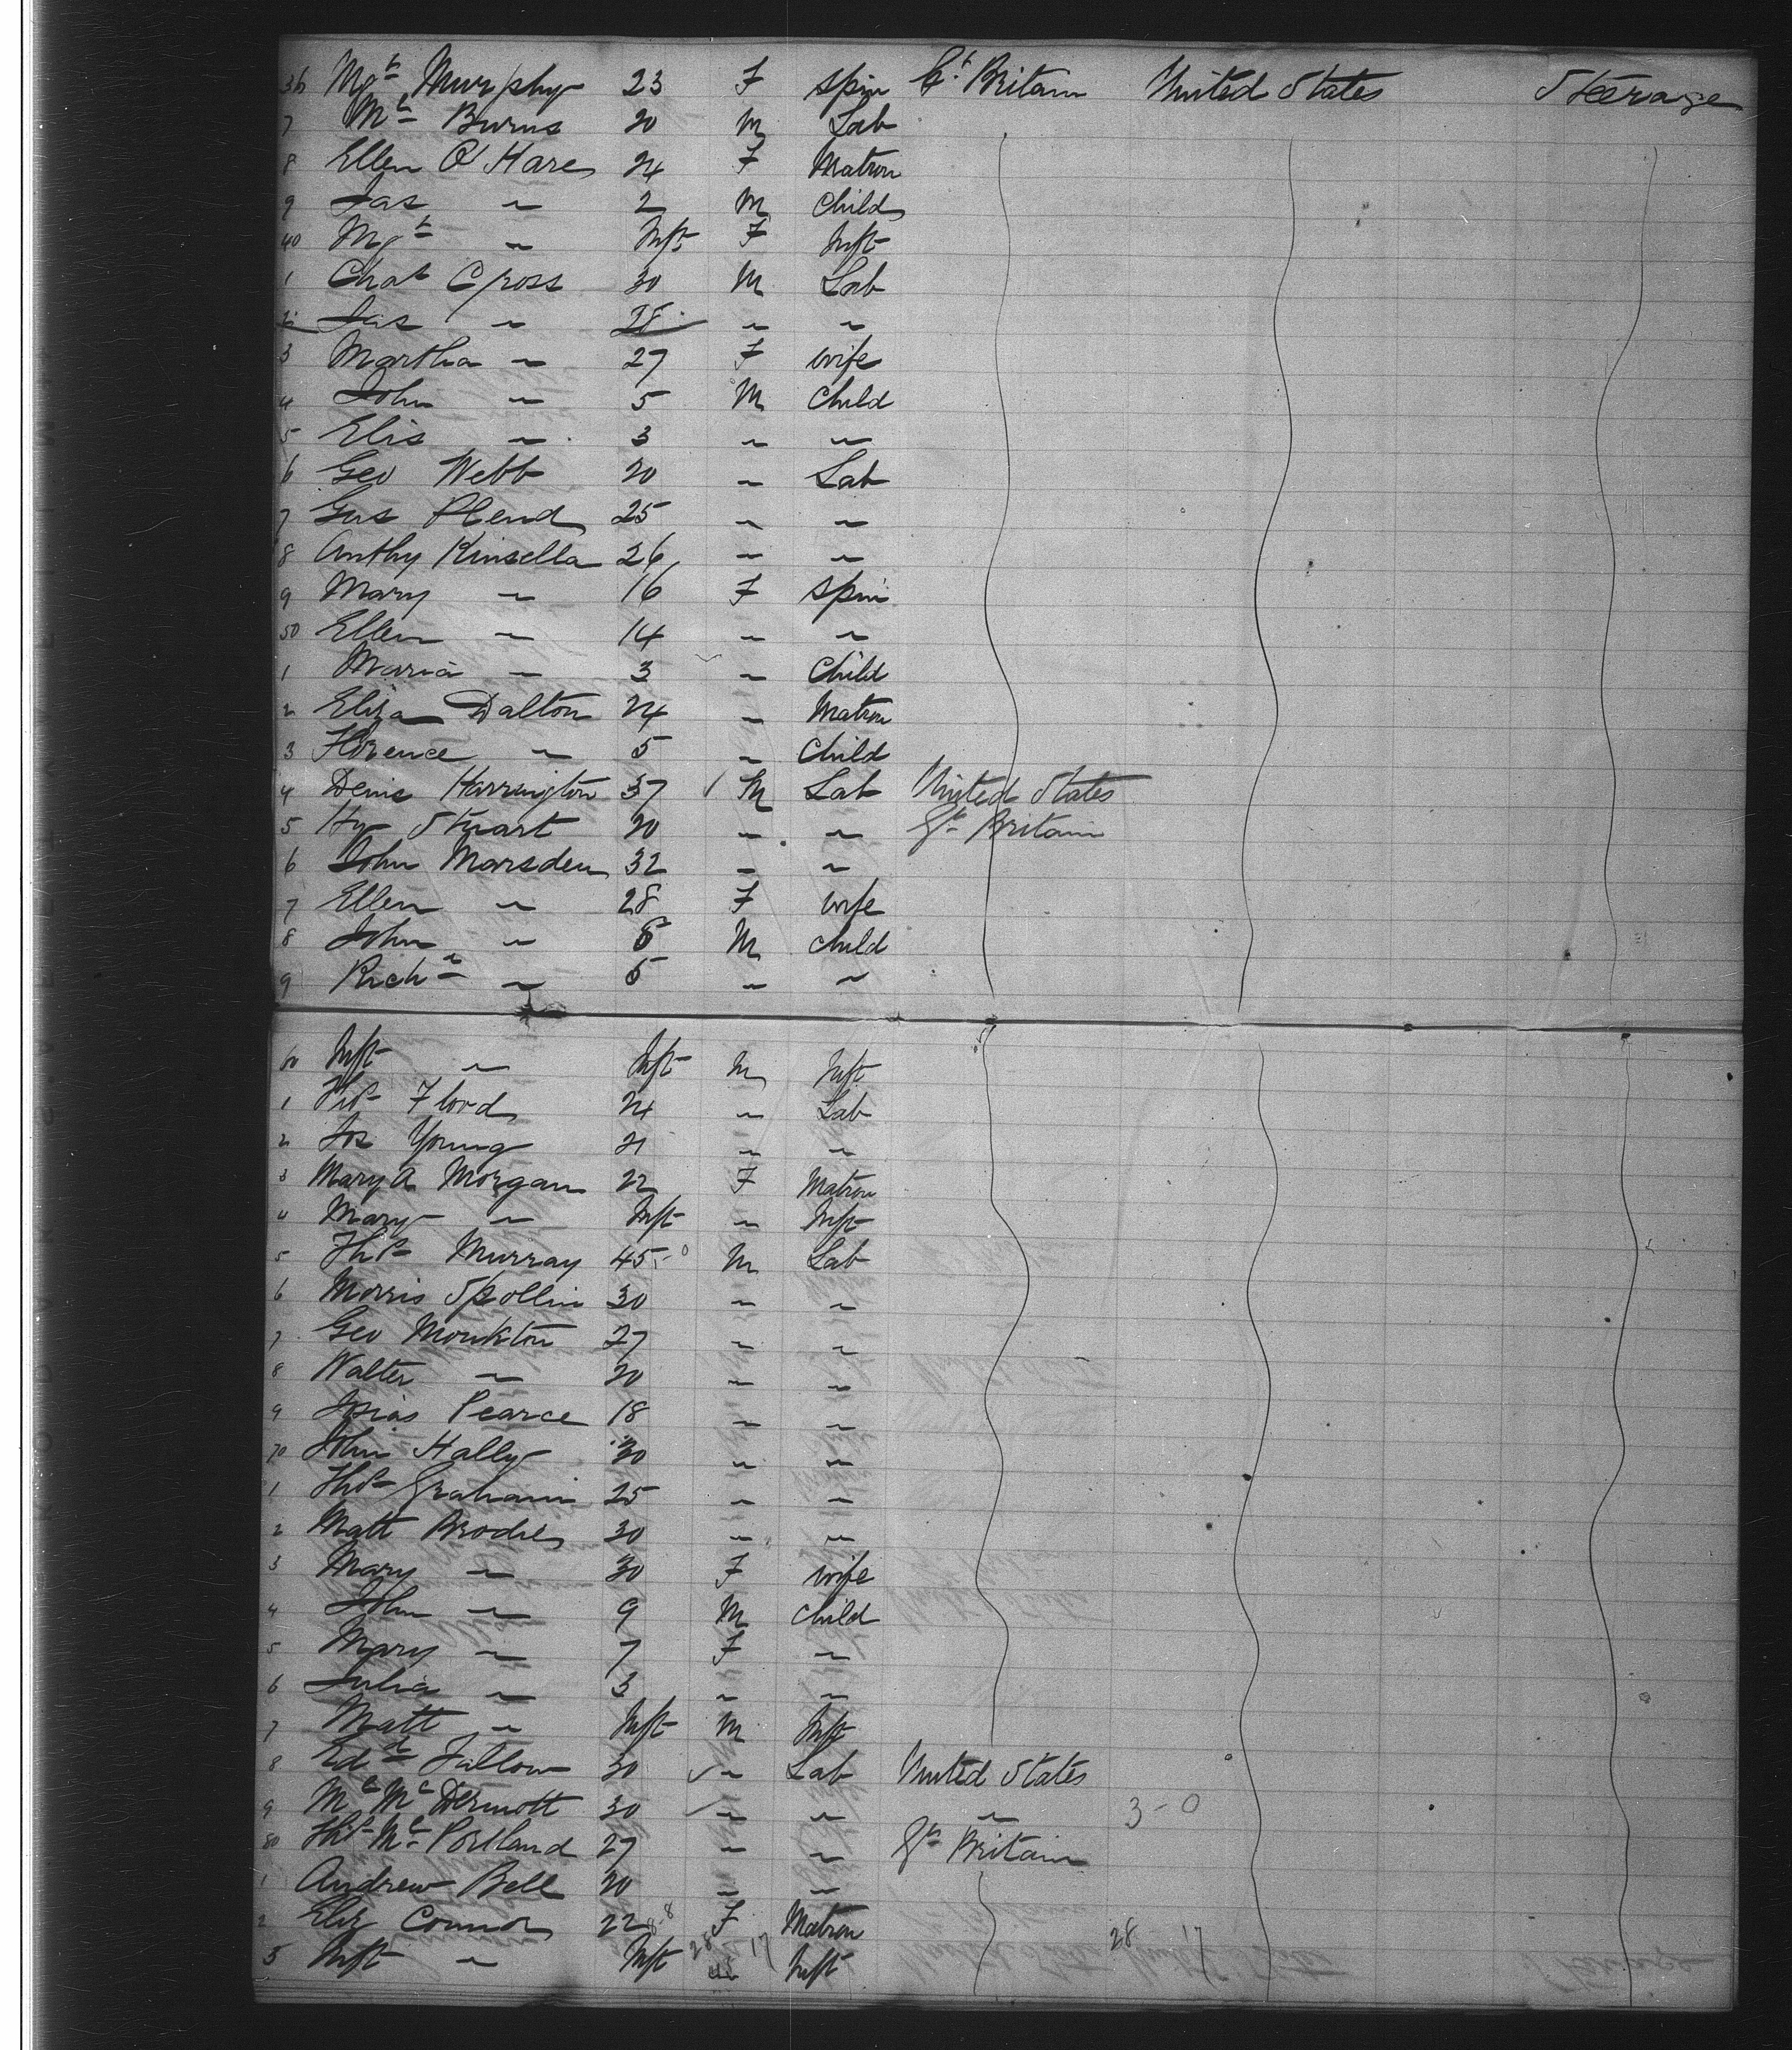 36 Mgt Murphy 23 F Spin Gt Britain United States Steerage
7 Ml Burns 20 M Lab
8 Ellen O'Hare 24 F Matron
9 Jas " 2 M Child
40 Mgt " Inft F Inft
1 Chas Cross 30 M Lab
2 Jas " 28 " "
3 Martha " 27 F wife
4 John " 5 M Child
5 Elis " 3 " "
6 Geo Webb 20 " Lab
7 Gus 25 " "
8 Anthy Kinsella 26 " "
9 Mary " 16 F Spin
50 Ellen " 14 " "
1 Maria " 3 " Child
2 Eliza Dalton 24 " Matron
3 Florence " 5 " Child
4 Denis Harrington 37 M Lab United States
5 Hy Stuart 20 " " Gt Britain
6 John Marsden 32 " "
7 Ellen " 28 F wife
8 John " M child
9 Richd " 5 " "
60 Inft " Inft M Inft
1 Flood 24 " Lab
2 Jos Young 21 " "
3 Mary A Morgan 22 F Matron
4 Mary " Inft " Inft
5 Thos Murray 45 M Lab
6 Morris Spollin 30 " "
7 Geo Monkton 27 " "
8 Walter " 20 " "
9 Josias Pearce 18 " "
70 John Hally 30 " "
1 Thos Graham 25 " "
2 Matt Brodie 30 " "
3 Mary " 30 F wife
4 John " 9 M child
5 Mary " 7 F "
6 Julia " 3 " "
7 Matt " Inft M Inft
8 Edd Fallon 30 " Lab United States
9 Ml McDermott 30 " " " 3-0
80 Thos McPortland 27 " " Gt Britain
1 Andrew Bell 20 " "
2 Eliz Connor 22 F Matron
3 Inft " Inft " Inft 28 17